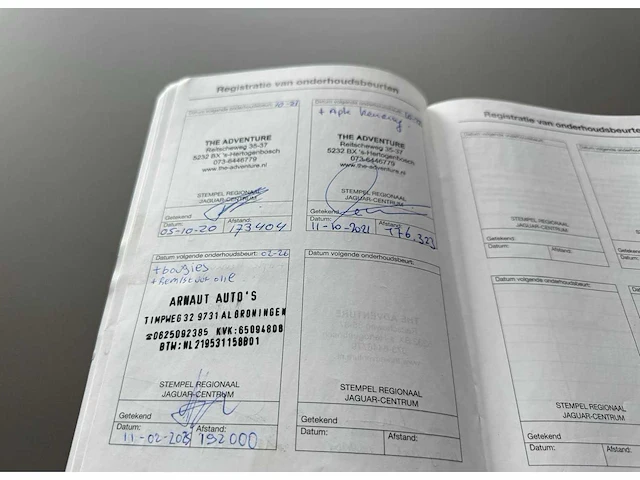 Registratie van onderhoudsbeurten
Datum volgende onderhoudsbeurt: 10-21
THE ADVENTURE
Reitscheweg 35-37
5232 BX 's-Hertogenbosch
073-6446779
www.the-adventure.nl
STEMPEL REGIONAAL
JAGUAR-CENTRUM
Getekend
Datum: Afstand:
05-10-20 173404
Datum volgende onderhoudsbeurt:
+ Apk keuring
THE ADVENTURE
Reitscheweg 35-37
5232 BX 's-Hertogenbosch
073-6446779
www.the-adventure.nl
STEMPEL REGIONAAL
JAGUAR-CENTRUM
Getekend
Datum: Afstand:
11-10-2021 176.323
Datum volgende onderhoudsbeurt: 02-26
+ bougies
+ Remstuurolie
ARNAUT AUTO'S
TIMPWEG 32 9731 AL GRONINGEN
☎0625092385 KVK:65094808
BTW:NL219531158B01
STEMPEL REGIONAAL
JAGUAR-CENTRUM
Getekend
Datum: Afstand:
11-02-2025 192000
Datum volgende onderhoudsbeurt:
STEMPEL REGIONAAL
JAGUAR-CENTRUM
Getekend
Datum: Afstand:
Registratie van onderhoudsbeurten
Datum volgende onderhoudsbeurt:
STEMPEL REGIONAAL
JAGUAR-CENTRUM
Getekend
Datum: Afstand:
Datum volgende onderhoudsbeurt:
STEMPEL REGIONAAL
JAGUAR-CENTRUM
Getekend
Datum: Afstand: